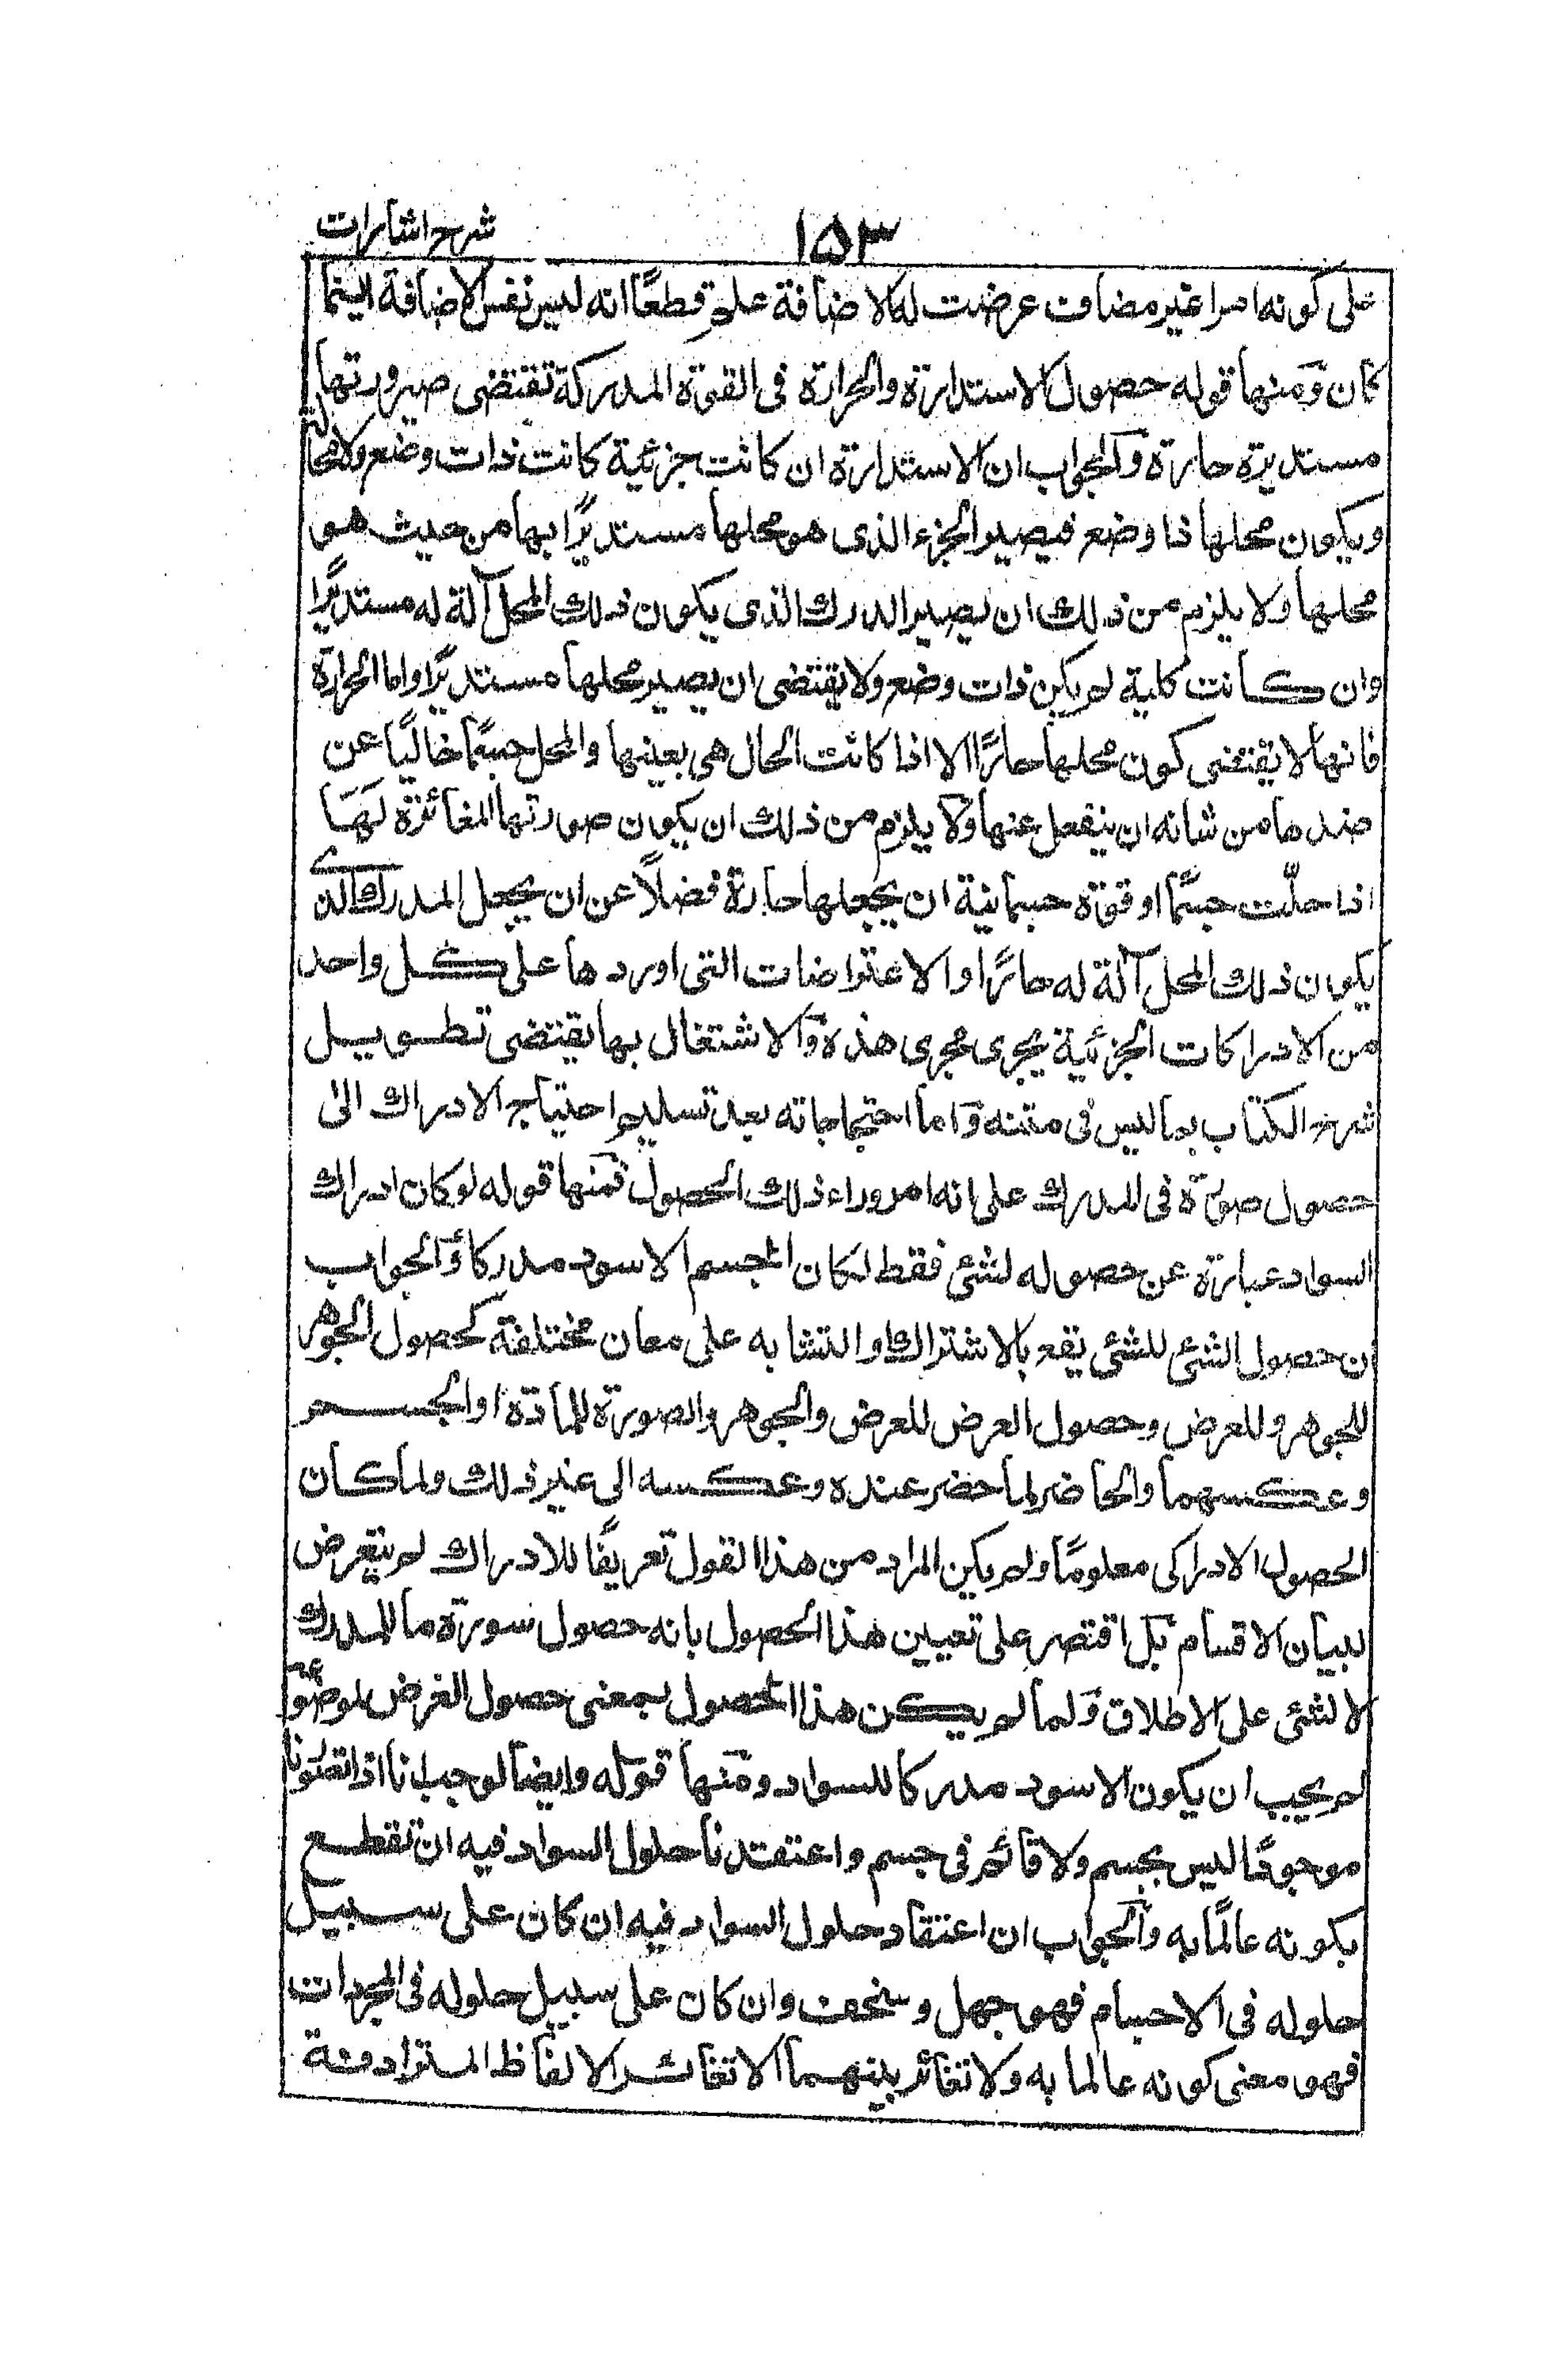 ١٥٣ شرح اشارات
على كونه امرا غير مضاف عرضت له الاضافة علم قطعًا انه ليس نفس الاضافة اينما
كان ومنها قوله حصول الاستدارة والحرارة فى القوة المدركة تقتضى صيرورتها
مستديرة حارة والجواب ان الاستدارة ان كانت جزئية كانت ذات وضع ولا محالة
ويكون محلها ذا وضع فيصير الجزء الذى هو محلها مستديرًا بها من حيث هو
محلها ولا يلزم من ذلك ان يصير المدرك الذى يكون ذلك المحل آلة له مستديرًا
وان كانت كلية لم يكن ذات وضع ولا يقتضى ان يصير محلها مستديرًا واما الحرارة
فانها لا يقتضى كون محلها حارًا الا اذا كانت الحال هى بعينها والمحل جسمًا خاليًا عن
ضدها من شانه ان ينفعل عنها ولا يلزم من ذلك ان يكون صورتها المغائرة لها
اذا حلّت جسمًا او قوة جسمانية ان يجعلها حارة فضلاً عن ان يجعل المدرك الذى
يكون ذلك المحل آلة له حارًا والاعتراضات التى اوردها على كل واحد
من الادراكات الجزئية يجرى مجرى هذه والاشتغال بها يقتضى تطويل
شرح الكتاب بما ليس فى متنه واما احتجاجاته بعد تسليم احتياج الادراك الى
حصول صورة فى المدرك على انه امر وراء ذلك الحصول فمنها قوله لو كان ادراك
السواد عبارة عن حصوله لشئ فقط لكان الجسم الاسود مدركا والجواب
ان حصول الشئ للشئ يقع بالاشتراك او التشابه على معان مختلفة كحصول الجوهر
للجوهر وللعرض وحصول العرض للعرض والجوهر والصورة للمادة او الجسم
وعكسهما والحاضر لما حضر عنده وعكسه الى غير ذلك ولما كان
الحصول الادراكى معلومًا ولم يكن المراد من هذا القول تعريفًا للادراك لم يتعرض
لبيان الاقسام بل اقتصر على تعيين هذا الحصول بانه حصول صورة ما للمدرك
لا لشئ على الاطلاق ولما لم يكن هذا الحصول بمعنى حصول العرض لموضوعه
لم يجب ان يكون الاسود مدركا للسواد ومنها قوله وايضا لوجب انا اذا تصورنا
موجودًا ليس بجسم ولا قائم فى جسم واعتقدنا حلول السواد فيه ان نقطع
بكونه عالمًا به والجواب ان اعتقاد حلول السواد فيه ان كان على سبيل
حلوله فى الاجسام فهو جهل وسخف وان كان على سبيل حلوله فى المجردات
فهو معنى كونه عالما به ولا تغائر بينهما الا تغائر الالفاظ المترادفة